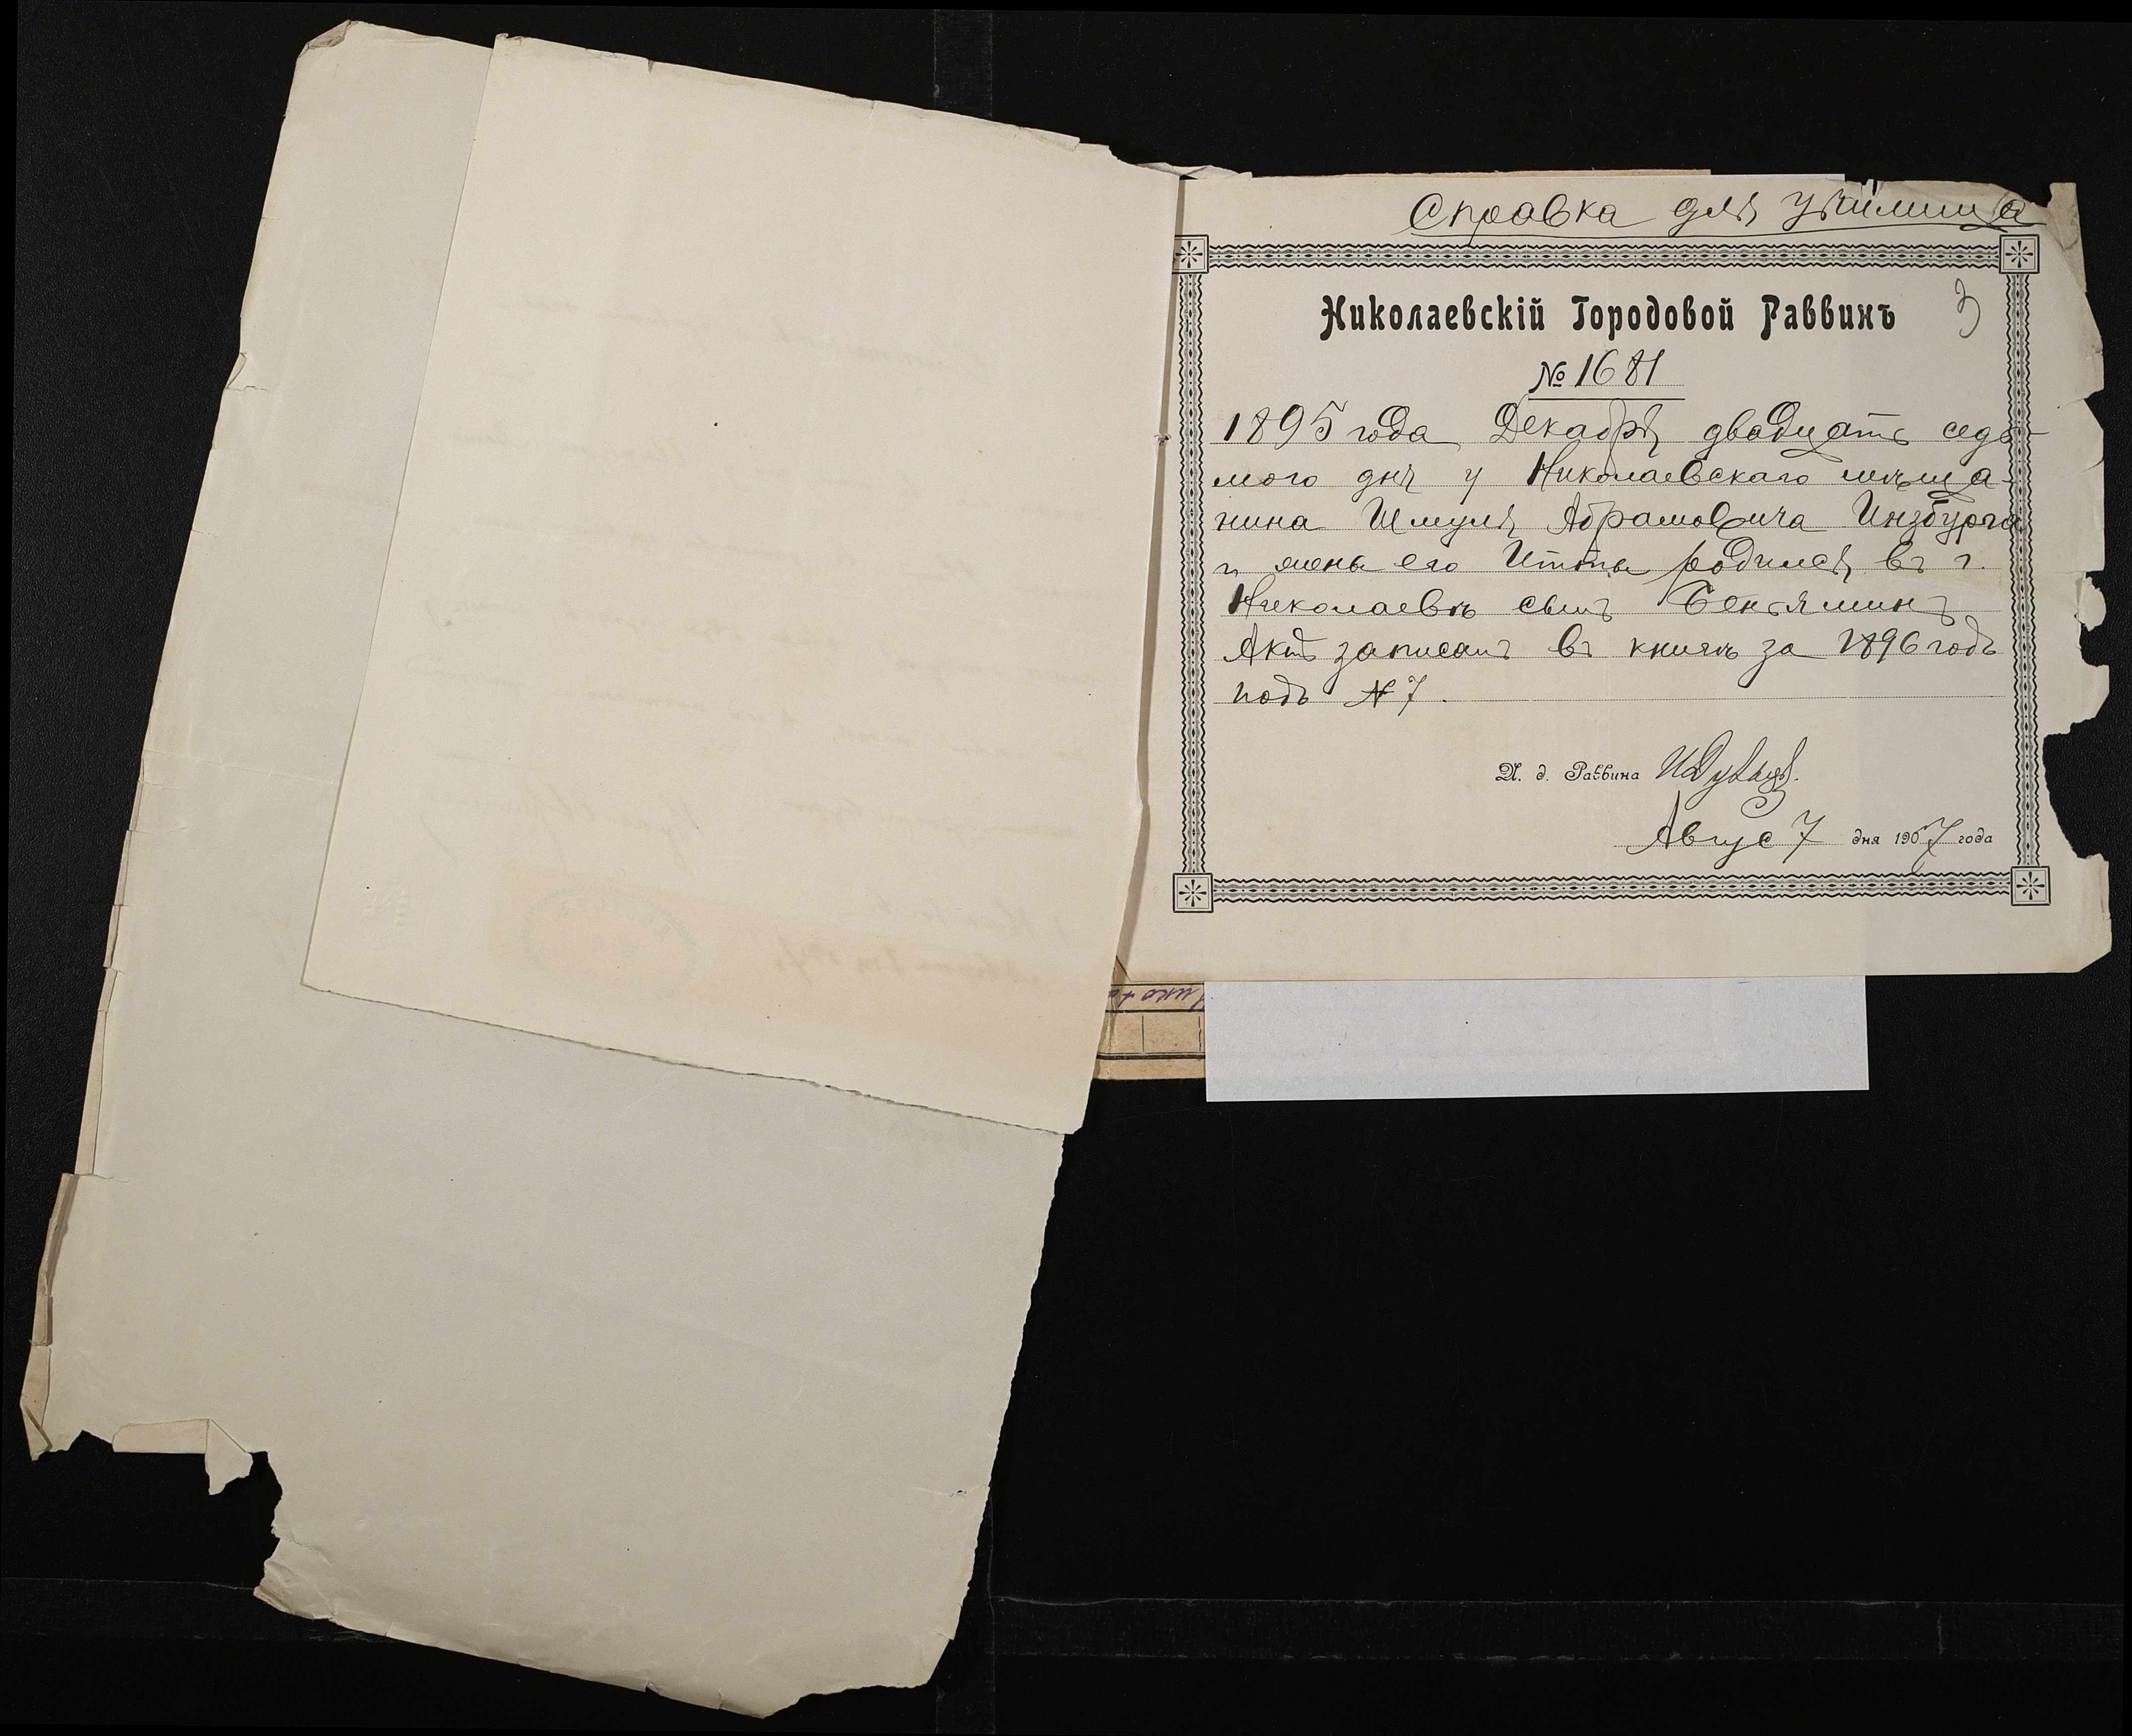 Справка для училища
Николаевскій Городовой Раввинъ
3
№ 1681
1895 года Декабря двадцать седь-
мого дня у Николаевскаго мѣща-
нина Шмуля Абрамовича Инзбурга
и жены его Итты родился въ г.
Николаевѣ сынъ Беньяминъ
Актъ записанъ въ книгѣ за 1896 годъ
подъ № 7.
И. д. Раввина
Авгус 7 дня 1907 года